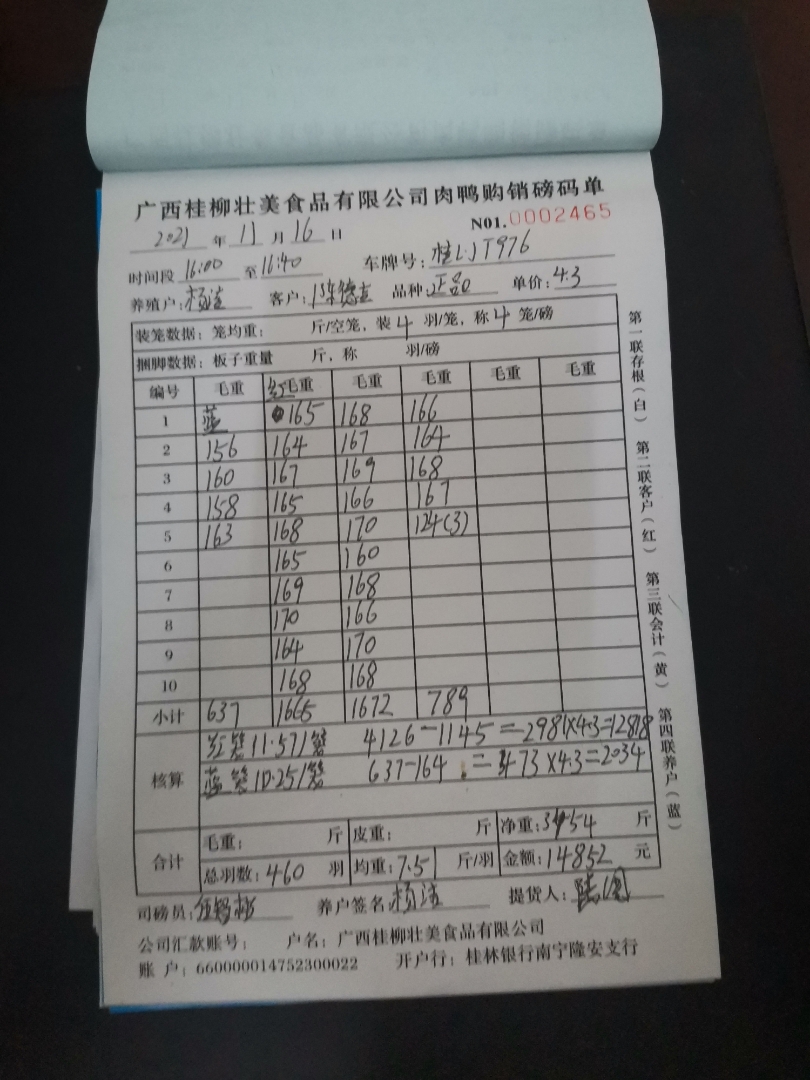 广西桂柳壮美食品有限公司肉鸭购销磅码单
N01.0002465
2021年11月16日
时间段 16:00 至 16:40 车牌号: 桂L·JT976
养殖户: 杨 客户: 陈德 品种: 正品 单价: 4.3
装笼数据: 笼均重: 斤/空笼, 装 4 羽/笼, 称 4 笼/磅
捆脚数据: 板子重量 斤, 称 羽/磅
编号 毛重 红毛重 毛重 毛重 毛重 毛重
1 蓝 165 168 166
2 156 164 167 164
3 160 167 169 168
4 158 165 166 167
5 163 168 170 124(3)
6 165 160
7 169 168
8 170 166
9 164 170
10 168 168
小计 637 1665 1672 789
核算
红笼11.57/笼 4126-1145=2981×4.3=12818
蓝笼10.25/笼 637-164=473×4.3=2034
合计
毛重: 斤 皮重: 斤 净重: 3454 斤
总羽数: 460 羽 均重: 7.51 斤/羽 金额: 14852 元
司磅员: 养户签名: 杨 提货人:
公司汇款账号: 户名: 广西桂柳壮美食品有限公司
账 户: 660000014752300022 开户行: 桂林银行南宁隆安支行
第一联存根(白) 第二联客户(红) 第三联会计(黄) 第四联养户(蓝)